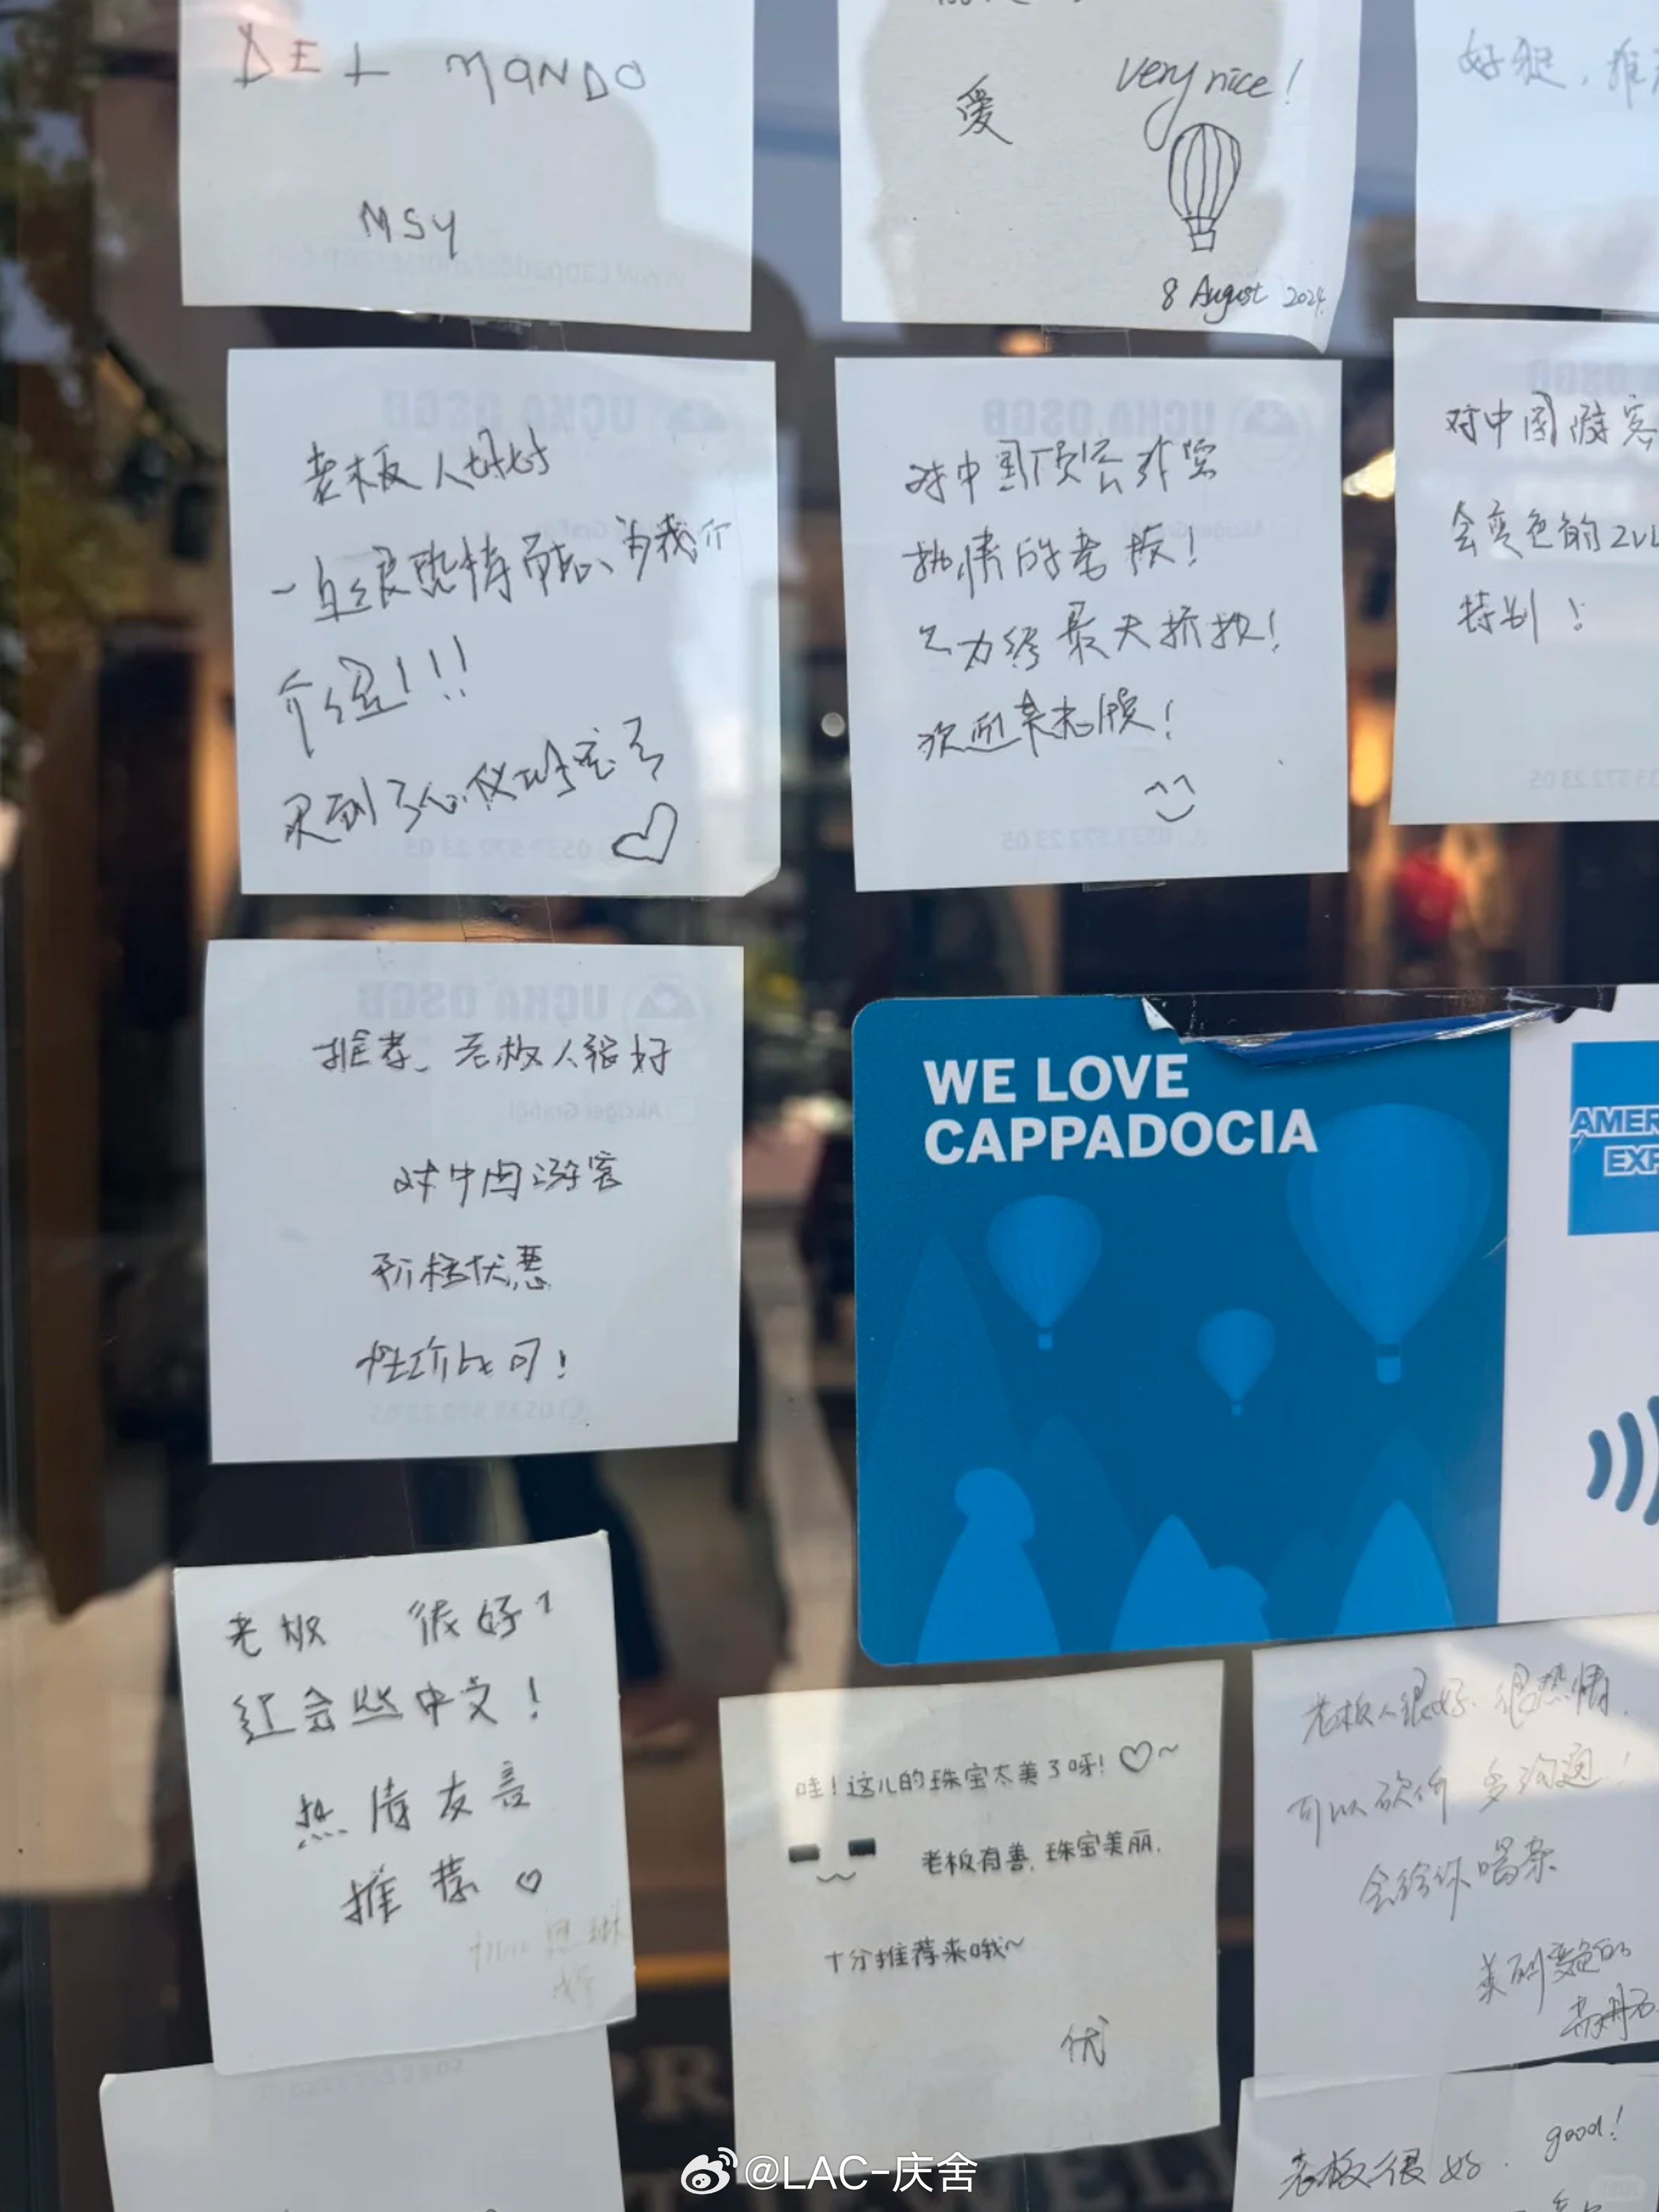 DEL MANDO
MSY
爱
very nice!
8 August 2024
好
老板人好好
一直很热情耐心为我介
介绍!!!
买到了心仪的宝了
对中国顾客非常
热情的老板!
会给最大折扣!
欢迎来光顾!
对中国游客
会变色的ZUL
特别!
推荐、老板人很好
对中国游客
价格优惠
性价比可!
WE LOVE
CAPPADOCIA
AMER
EXP
老板 很好!
还会些中文!
热情友善
推荐
哇!这儿的珠宝太美了呀!~
老板有善,珠宝美丽.
十分推荐来哦~
优
老板人很好 很热情.
可以砍价 多沟通!
会给你喝茶
变色的
老板很好. good!
@LAC-庆舍